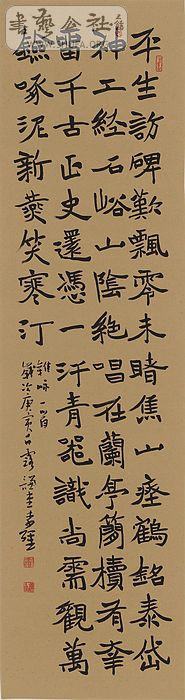 平生訪碑歎飄零未睹焦山瘞鶴銘泰岱
神工經石峪山陰絶唱在蘭亭簡牘有幸
留千古正史還憑一汗青器識尚需觀萬
啄泥新燕笑寒汀
雜咏一首
歲次庚寅白露